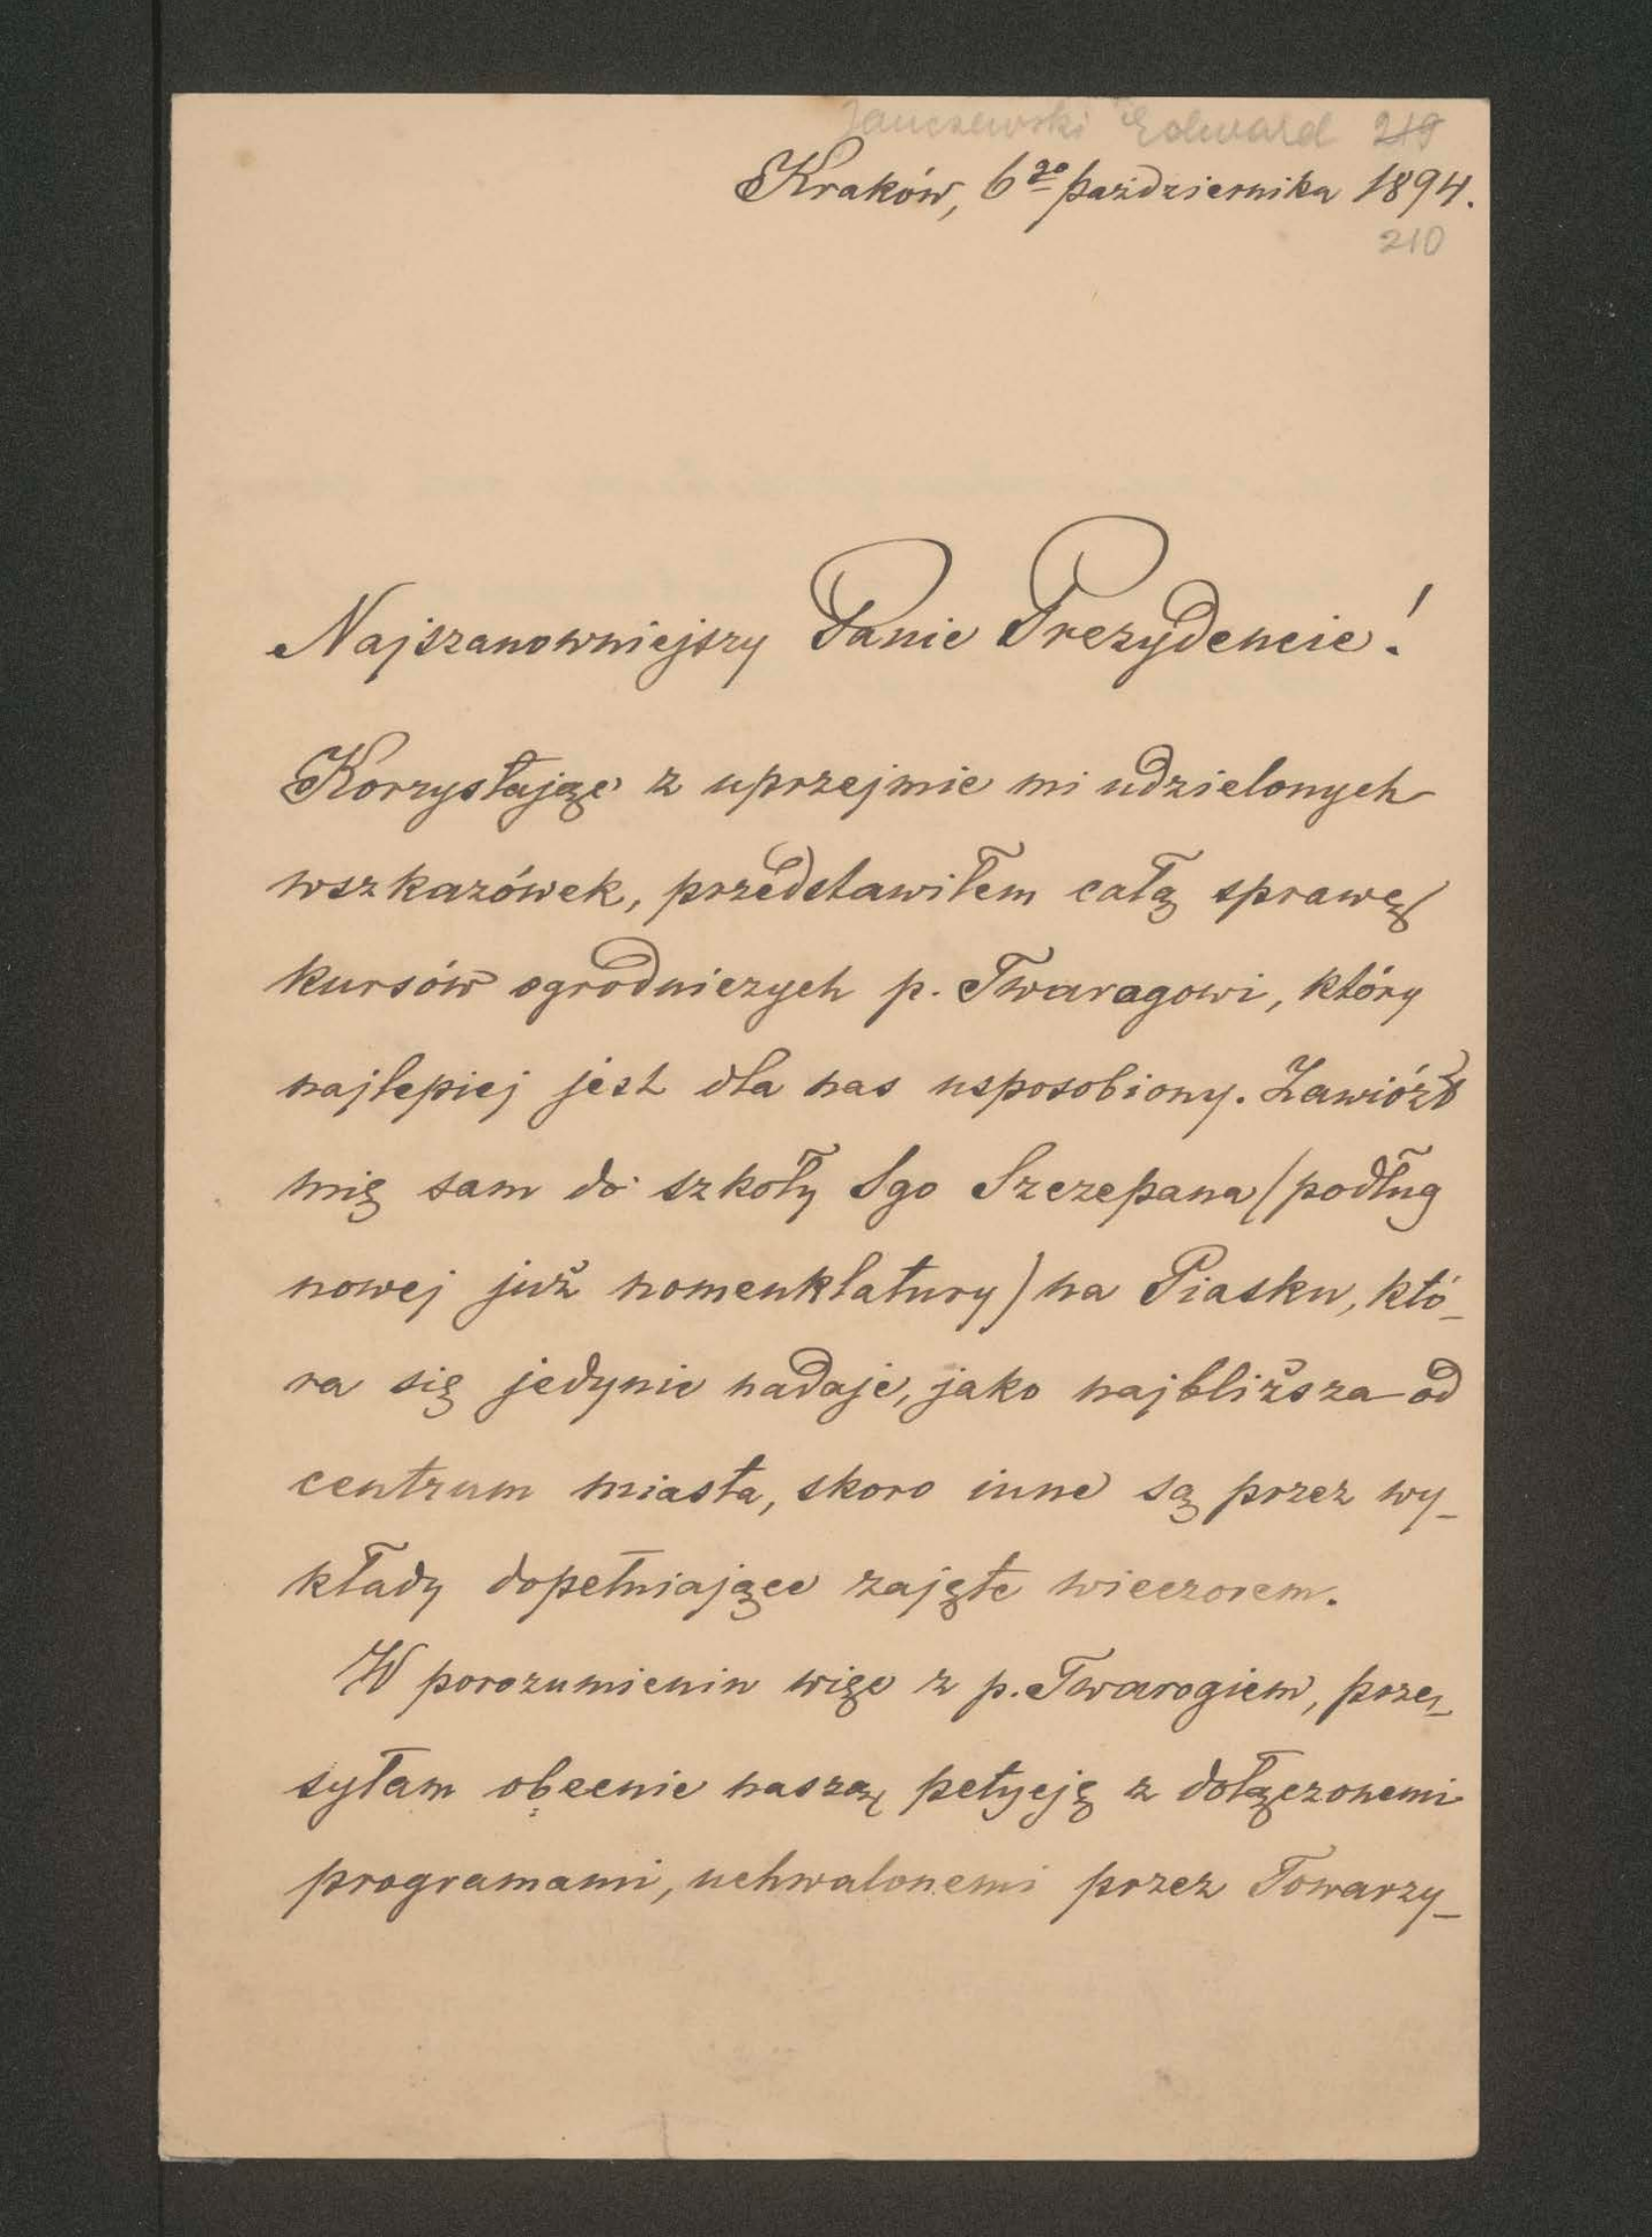 Janczewski Edward 219
Kraków, 6go października 1894.
210
Najszanowniejszy Panie Prezydencie!
Korzystając z uprzejmie mi udzielonych
wszkazówek, przedstawiłem całą sprawę
kursów ogrodniczych p. Twaragowi, który
najlepiej jest dla nas usposobiony. Zawiózł
mię sam do szkoły Sgo Szczepana (podług
nowej już nomenklatury) na Piasku, któ-
ra się jedynie nadaje, jako najbliższa od
centrum miasta, skoro inne są przez wy-
kłady dopełniające zajęte wieczorem.
W porozumieniu więc z p. Twarogiem, prze-
syłam obecnie naszą petycję z dołączonemi
programami, uchwalonemi przez Towarzy-